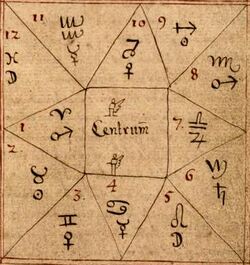 11 ♒ ☿
10 ♑ ♀
9 ♐ ☉
12 ♓ ☽
8 ♏ ♂
1 ♈ ♂
Centrum
7. ♎ ♃
2 ♉ ☉
6 ♍ ♄
3. ♊ ♀
4 ♋ ☿
5 ♌ ☽